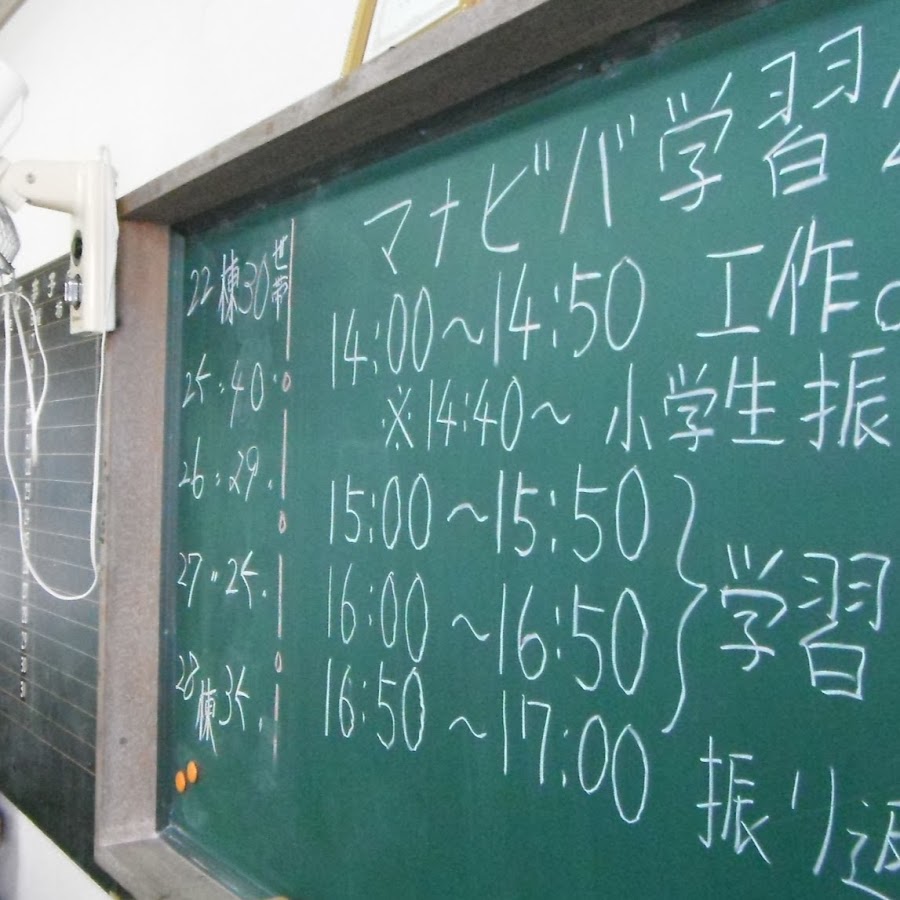 22棟30世帯
25〃40〃
26〃29〃
27〃25〃
28棟35〃
マナビバ学習
14:00〜14:50 工作
※14:40〜 小学生振
15:00〜15:50
16:00〜16:50
学習
16:50〜17:00 振り返